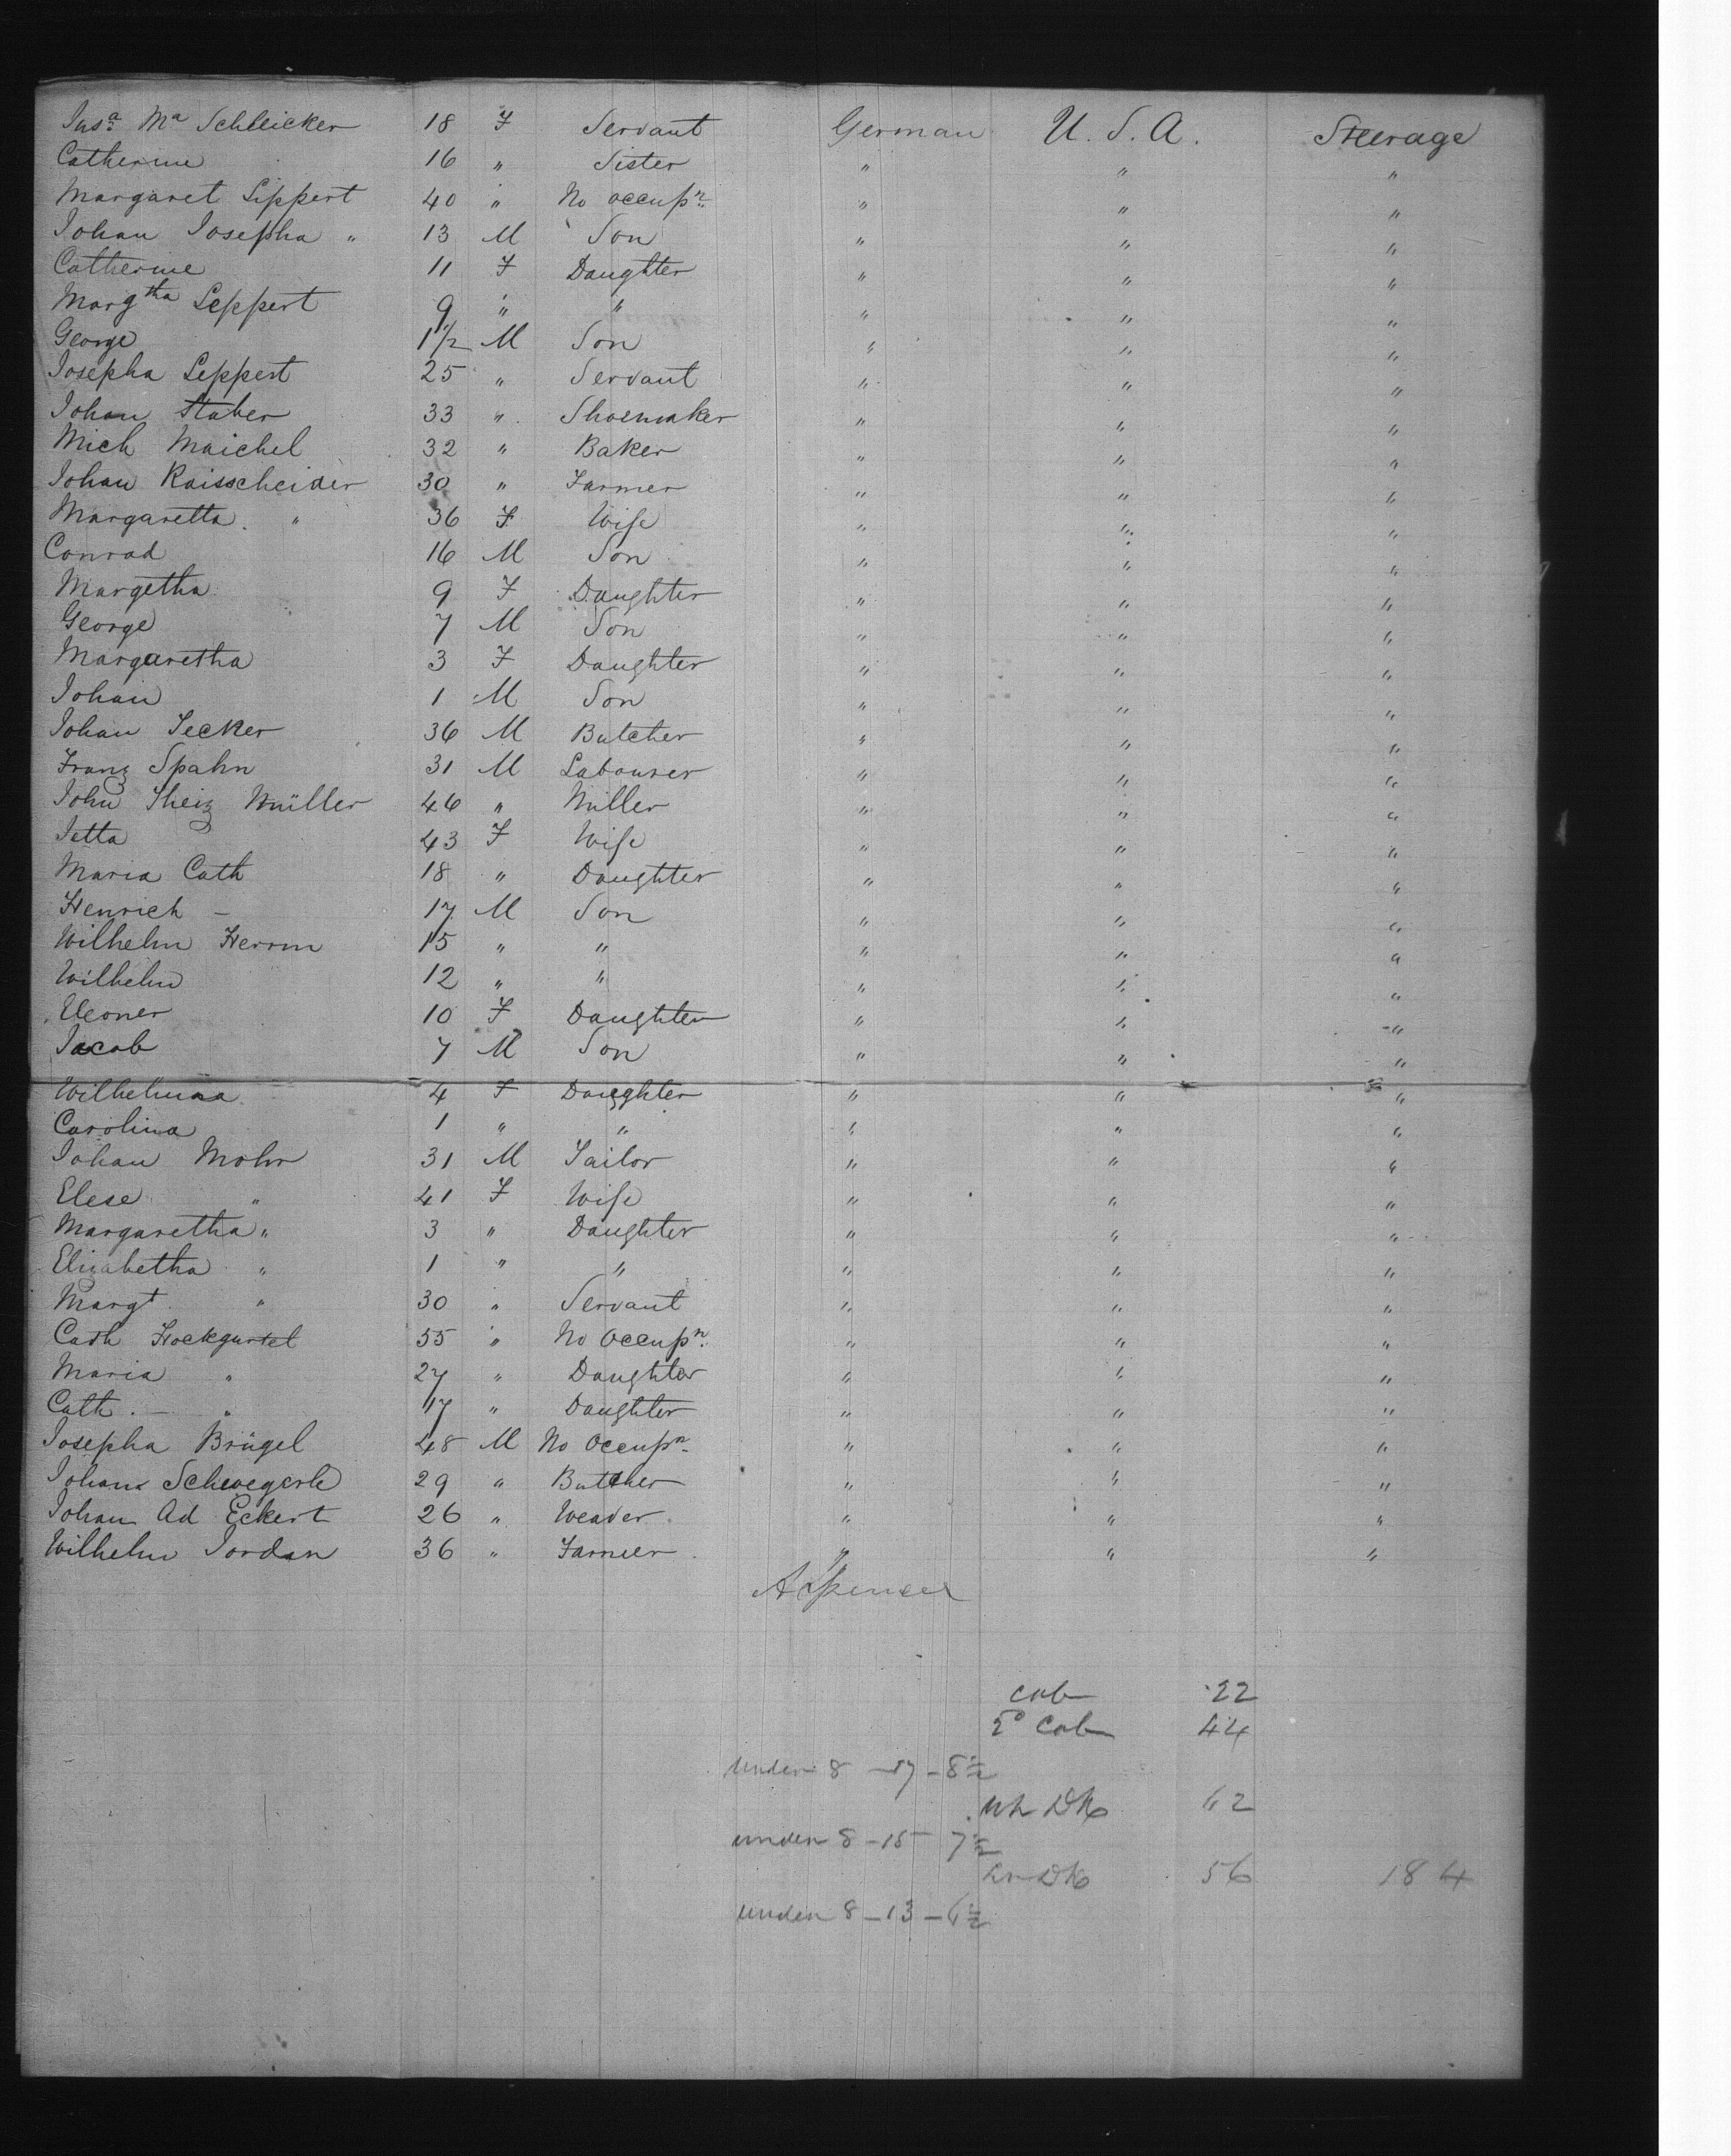 Jusª Mª Schleicker 18 F Servant German U. S. A. Steerage
Catherine 16 " Sister " " "
Margaret Lippert 40 " No occupn " " "
Johan Josepha " 13 M Son " " "
Catherine 11 F Daughter " " "
Margtha Leppert 9 " " " " "
George 1 1/2 M Son " " "
Josepha Leppert 25 " Servant " " "
Johan Staber 33 " Shoemaker " " "
Mich Maichel 32 " Baker " " "
Johan Raisscheider 30 " Farmer " " "
Margaretta " 36 F Wife " " "
Conrad 16 M Son " " "
Margetha 9 F Daughter " " "
George 7 M Son " " "
Margaretha 3 F Daughter " " "
Johan 1 M Son " " "
Johan Jecker 36 M Butcher " " "
Franz Spahn 31 M Labourer " " "
John Theiz Müller 46 " Miller " " "
Jetta 43 F Wife " " "
Maria Cath 18 " Daughter " " "
Henrich - 17 M Son " " "
Wilhelm Herrm 15 " " " " "
Wilhelm 12 " " " " "
Eleoner 10 F Daughter " " "
Jacob 7 M Son " " "
Wilhelmina 4 F Daughter " " "
Carolina 1 " " " " "
Johan Mohr 31 M Tailor " " "
Elese " 41 F Wife " " "
Margaretha " 3 " Daughter " " "
Elizabetha " 1 " " " " "
Margt " 30 " Servant " " "
Cath Hockgurtel 55 " No Occupn " " "
Maria " 27 " Daughter " " "
Cath. - " 17 " Daughter " " "
Josepha Brügel 48 M No Occupn " " "
Johan Schwegerle 29 " Butcher " " "
Johan Ad Eckert 26 " Weaver " " "
Wilhelm Jordan 36 " Farmer " " "
A Spencer
Cab 22
2º Cab 44
under 8 - 17 - 8 1/2
62
under 8 - 15 7 1/2
56 184
under 8 - 13 - 6 1/2